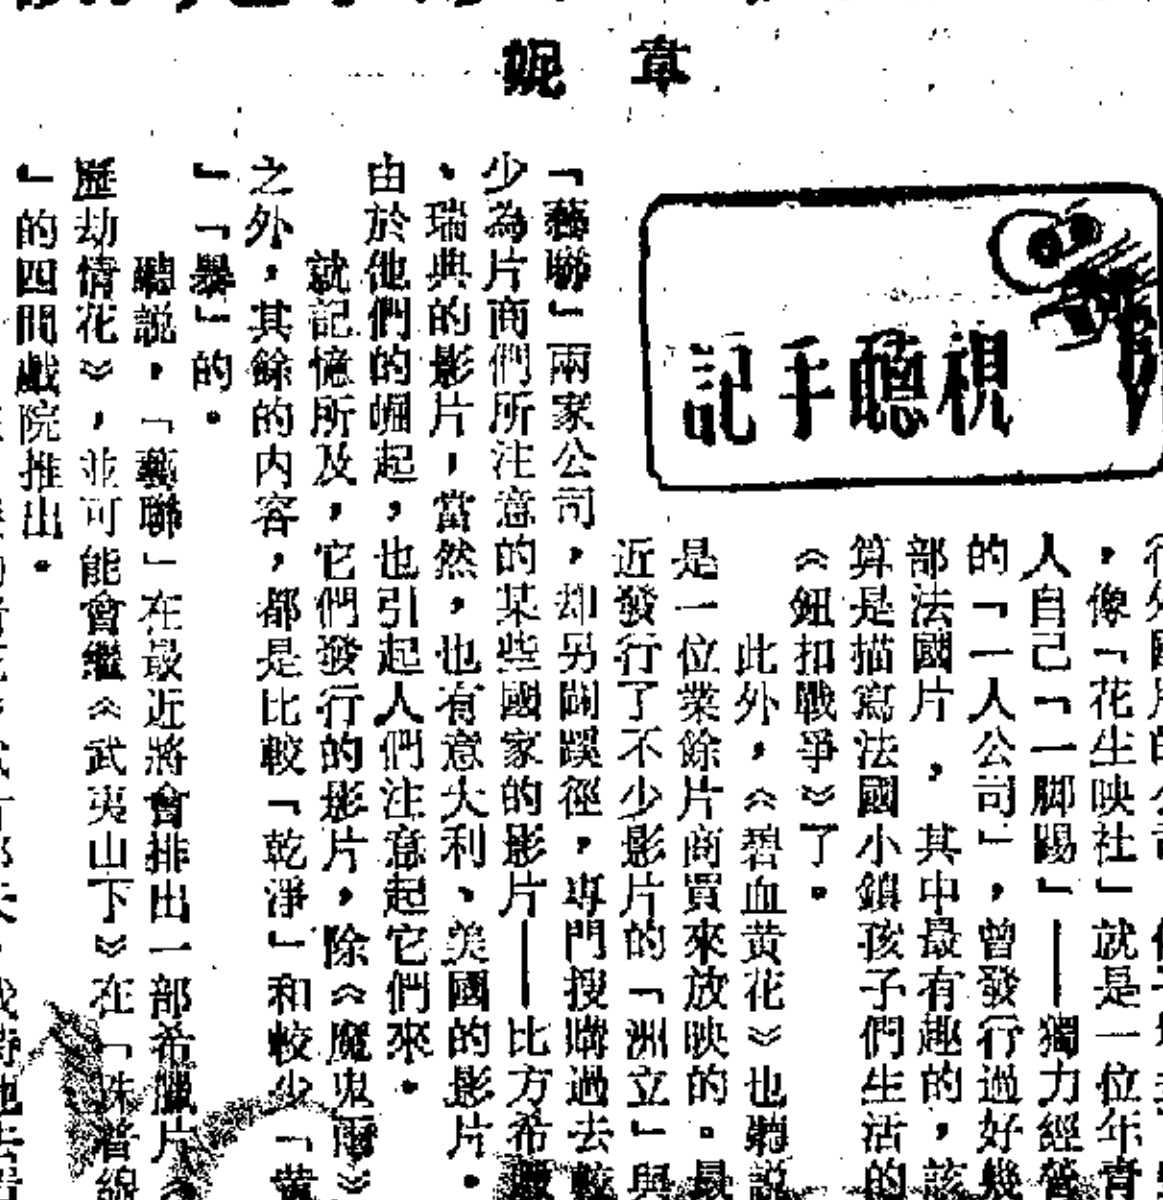 章妮
視聽手記
，像「花生映社」就是一位年青
人自己「一脚踢」——獨力經營
的「一人公司」，曾發行過好幾
部法國片，其中最有趣的，該
算是描寫法國小鎮孩子們生活的
《鈕扣戰爭》了。
此外，《碧血黄花》也聽説
是一位業餘片商買來放映的。最
近發行了不少影片的「洲立」與
「藝聯」兩家公司，却另闢蹊徑，專門搜購過去較
少為片商們所注意的某些國家的影片——比方希臘
、瑞典的影片，當然，也有意大利、美國的影片。
由於他們的崛起，也引起人們注意起它們來。
就記憶所及，它們發行的影片，除《魔鬼雨》
之外，其餘的内容，都是比較「乾淨」和較少「黄
」「暴」的。
聽説，「藝聯」在最近將會排出一部希臘片《
歷劫情花》，並可能會繼《武夷山下》在「珠普線
」的四間戲院推出。